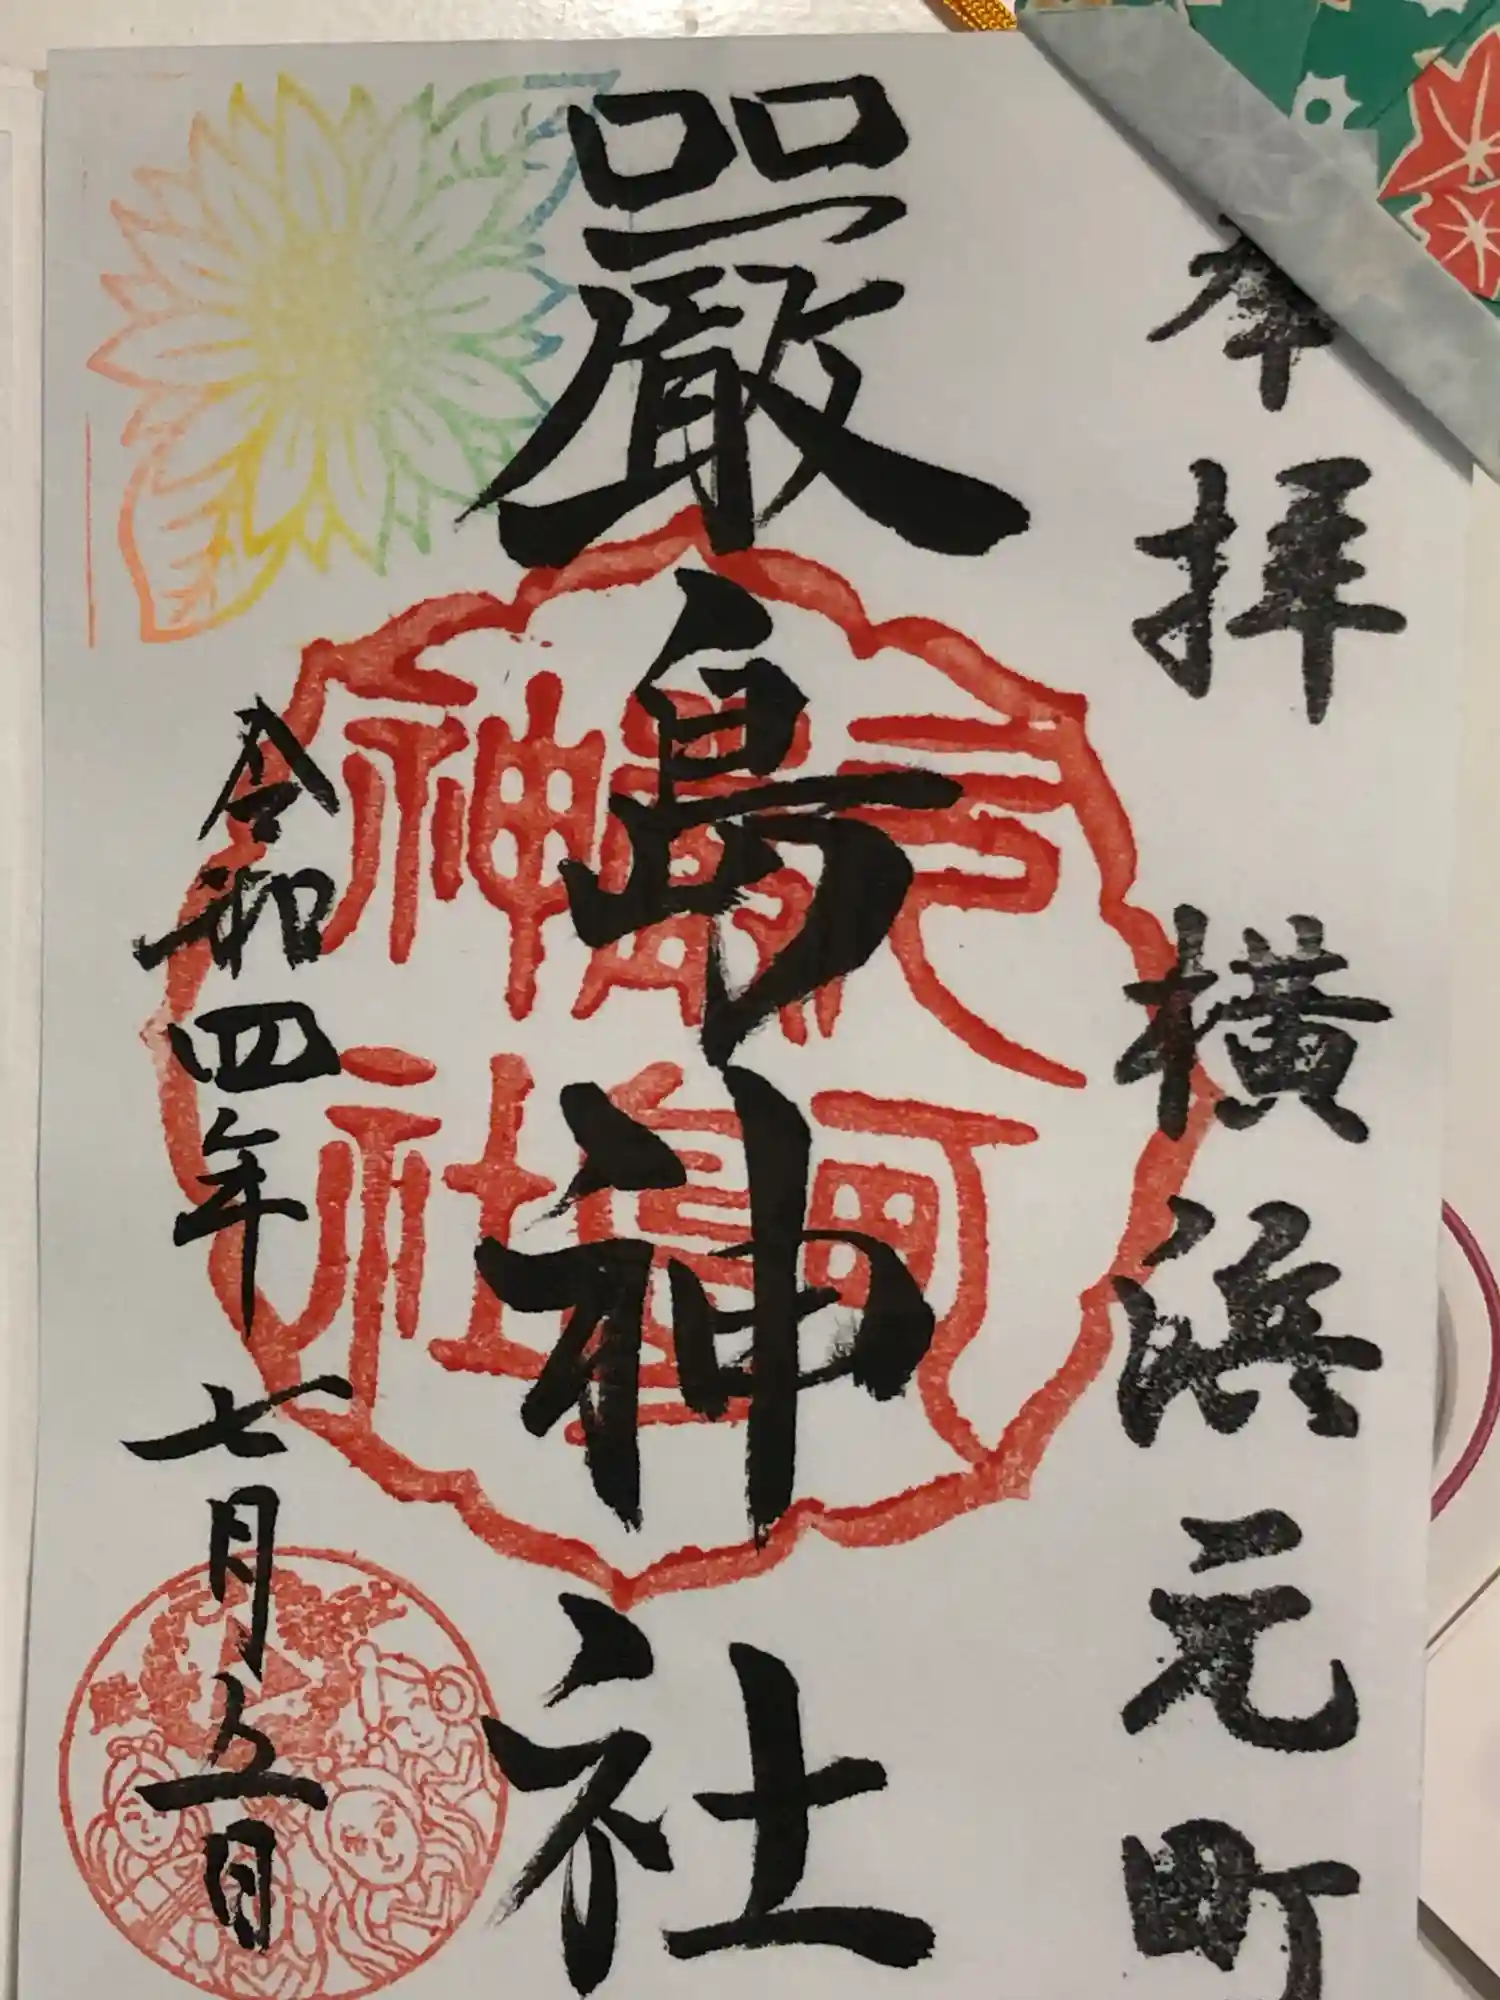 奉拝 横浜元町
嚴島神社
元町
嚴島
神社
令和四年七月五日